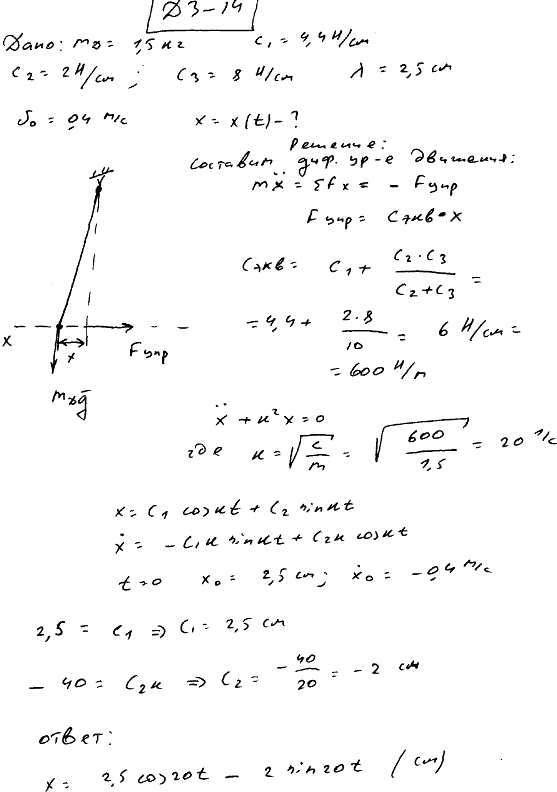 Д3-14
Дано: m_D = 1,5 кг   C₁ = 4,4 Н/см
C₂ = 2 Н/см ; C₃ = 8 Н/см   λ = 2,5 см
υ₀ = 0,4 м/с   x = x(t) - ?
Решение:
составим диф. ур-е движения:
mẍ = ΣFx = - Fупр
Fупр = Cэкв · x
Cэкв = C₁ + (C₂ · C₃)/(C₂ + C₃) =
= 4,4 + (2·8)/10 = 6 Н/см =
= 600 Н/м
x
x
Fупр
m_D g̅
ẍ + к²x = 0
где к = √(c/m) = √(600/1,5) = 20 1/с
x = C₁ cos кt + C₂ sin кt
ẋ = - C₁к sin кt + C₂к cos кt
t=0   x₀ = 2,5 см; ẋ₀ = -0,4 м/с
2,5 = C₁ ⇒ C₁ = 2,5 см
- 40 = C₂к ⇒ C₂ = -40/20 = -2 см
ответ:
x = 2,5 cos 20t - 2 sin 20t (см)